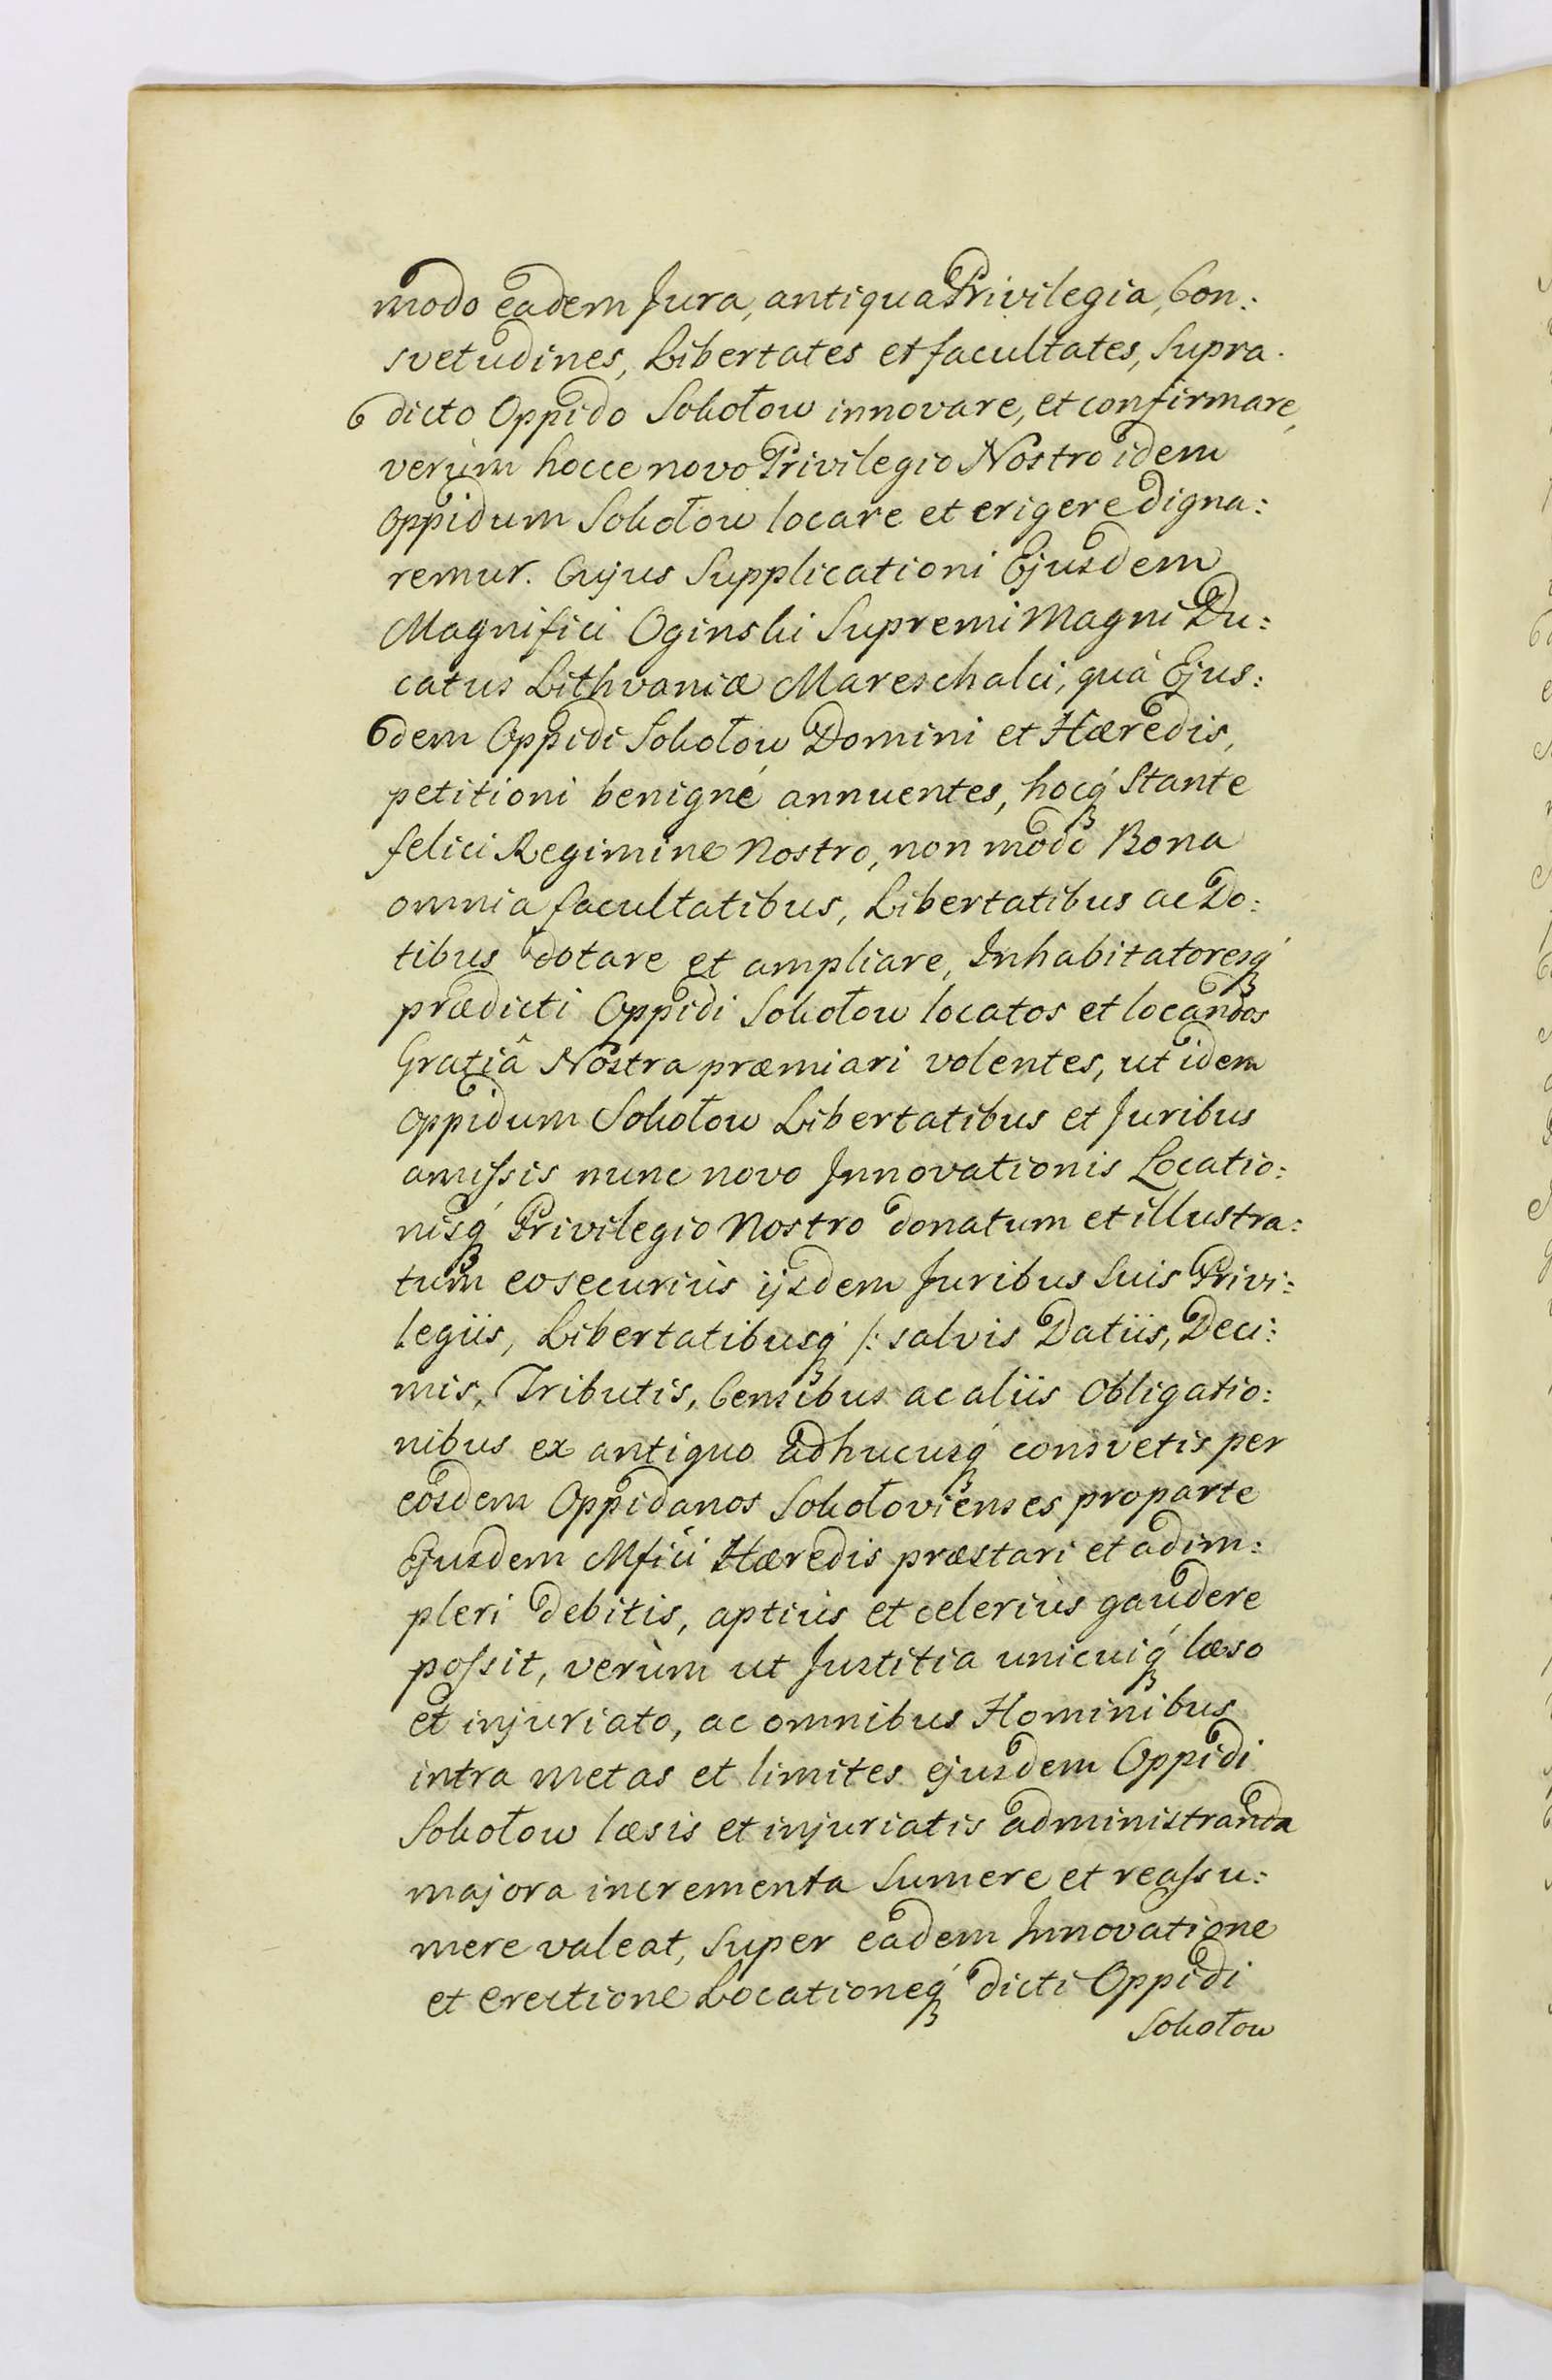 modo eadem Jura, antiqua Privilegia, Con:
svetudines, Libertates et facultates, Supra.
dicto Oppido Sokołow innovare, et confirmare,
verùm hocce novo Privilegio Nostro idem
Oppidum Sokołow locare et erigere digna:
remur. Cujus Supplicationi Ejusdem
Magnifici Oginski Supremi Magni Du:
catus Lithvaniæ Mareschalci, quà Ejus:
dem Oppidi Sokołow Domini et Hæredis,
petitioni benigné annuentes, hocq́ Stante
felici Regimine Nostro, non modo Bona
omnia facultatibus, Libertatibus ac Do:
tibus dotare et ampliare, Inhabitatoresq́
prædicti Oppidi Sokołow locatos et locandos
Gratiâ Nostra præmiari volentes, ut idem
Oppidum Sokołow Libertatibus et Juribus
amissis nunc novo Innovationis Locatio:
nisq́ Privilegio Nostro donatum et illustra:
tum eo securiùs ijsdem Juribus Suis Privi:
legiis, Libertatibusq́ /: salvis Datiis, Deci:
mis, Tributis, Censibus ac aliis Obligatio:
nibus ex antiquo adhucusq́ consvetis per
eosdem Oppidanos Sokołovienses pro parte
Ejusdem Mfici Hæredis præstari et adim:
pleri debitis, aptiùs et celeriùs gaudere
possit, verùm ut Justitia unicuiq́ læso
et injuriato, ac omnibus Hominibus
intra metas et limites ejusdem Oppidi
Sokołow læsis et injuriatis administranda
majora incrementa Sumere et reassu:
mere valeat, Super eadem Innovatione
et erectione Locationeq́ dicti Oppidi
Sokołow